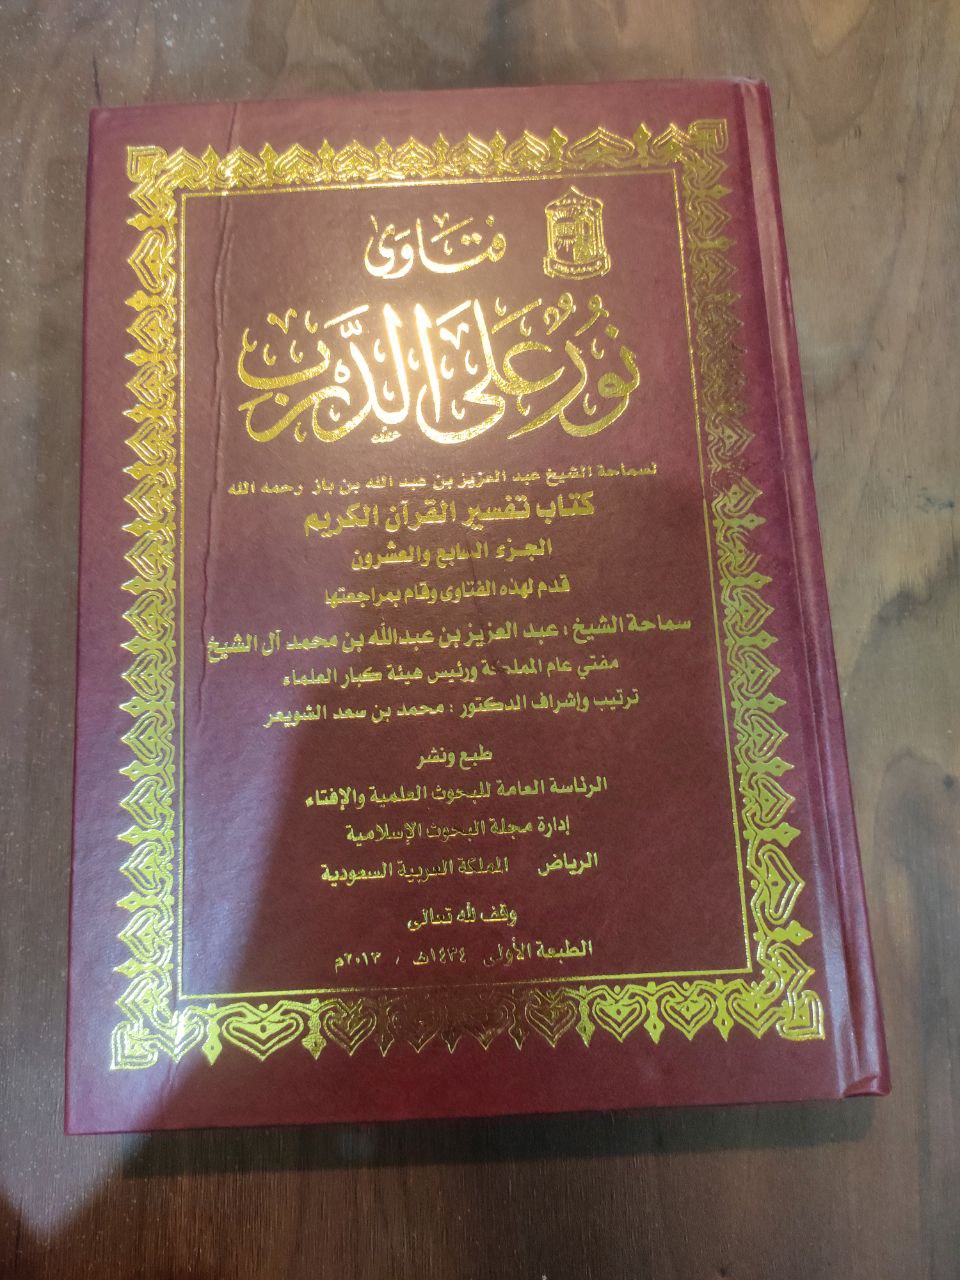 فتاوى
نُورٌ عَلَى الدَّرْبِ
لسماحة الشيخ عبد العزيز بن عبد الله بن باز رحمه الله
كتاب تفسير القرآن الكريم
الجزء السابع والعشرون
قدم لهذه الفتاوى وقام بمراجعتها
سماحة الشيخ : عبد العزيز بن عبدالله بن محمد آل الشيخ
مفتي عام المملكة ورئيس هيئة كبار العلماء
ترتيب وإشراف الدكتور : محمد بن سعد الشويعر
طبع ونشر
الرئاسة العامة للبحوث العلمية والإفتاء
إدارة مجلة البحوث الإسلامية
الرياض المملكة العربية السعودية
وقف لله تعالى
الطبعة الأولى ١٤٣٤هـ / ٢٠١٣م